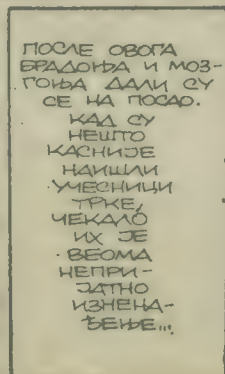 ПОСЛЕ ОВОГА
БРАДОЊА И МОЗ-
ГОЊА ДАЛИ СУ
СЕ НА ПОСАО.
КАД СУ
НЕШТО
КАСНИЈЕ
НАИШЛИ
УЧЕСНИЦИ
ТРКЕ,
ЧЕКАЛО
ИХ ЈЕ
ВЕОМА
НЕПРИ-
ЈАТНО
ИЗНЕНА-
ЂЕЊЕ...